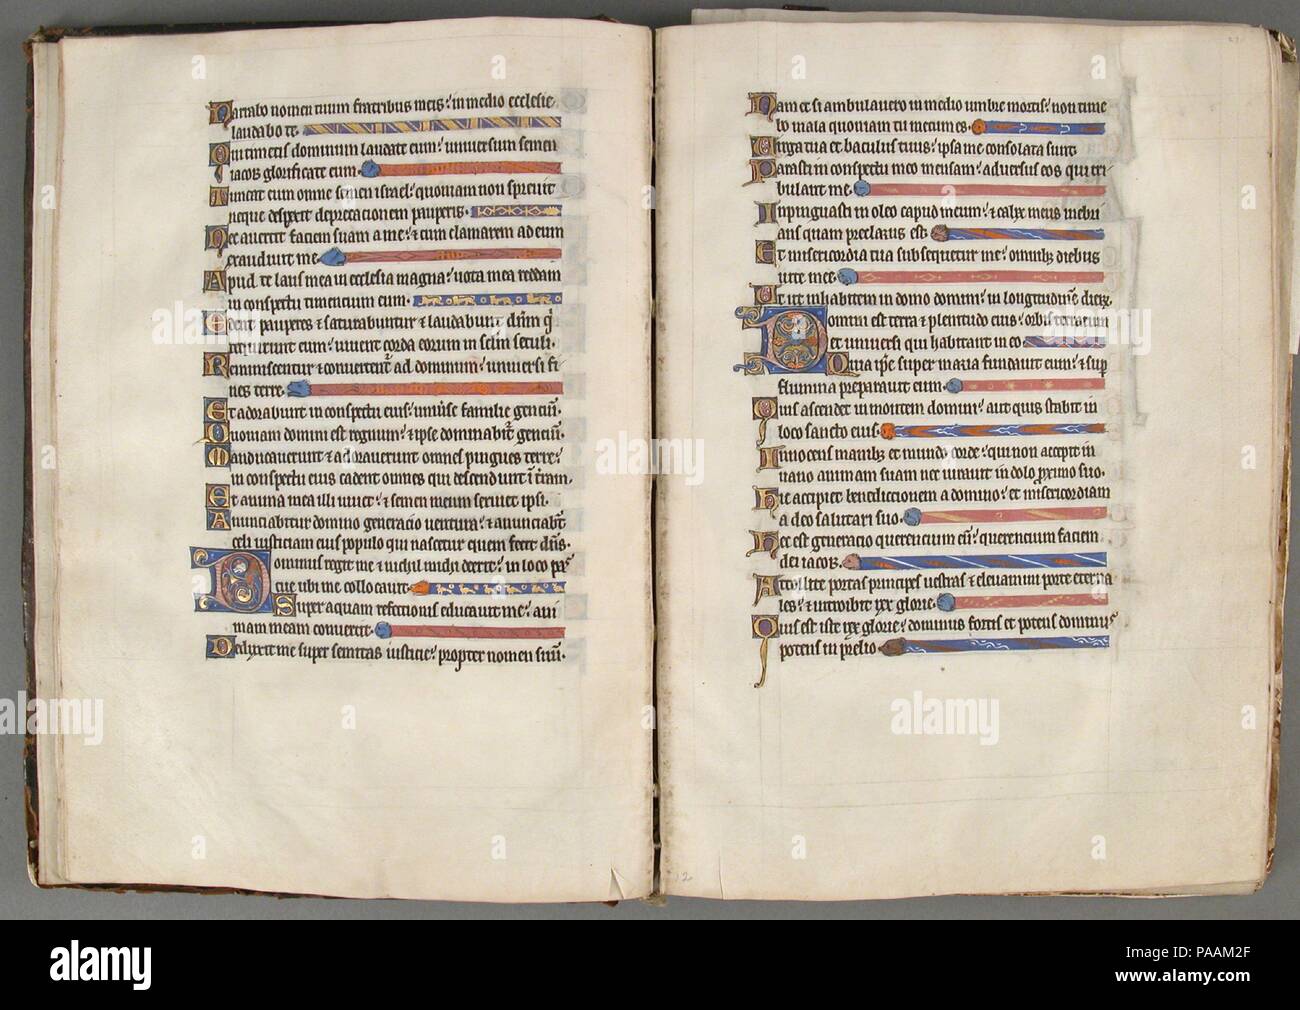 Narrabo nomen tuum fratribus meis: in medio ecclesie
laudabo te.
Qui timetis dominum laudate eum: universum semen
iacob glorificate eum.
Timeat eum omne semen israel: quoniam non sprevit
neque despexit deprecationem pauperis.
Nec avertit faciem suam a me: & cum clamarem ad eum
exaudivit me.
Apud te laus mea in ecclesia magna: vota mea reddam
in conspectu timencium eum.
Edent pauperes & saturabuntur & laudabunt dnm q̄
requirunt eum: vivent corda eorum in sclm seculi.
Reminiscentur & convertent̄ ad dominum: universi fi
nes terre.
Et adorabunt in conspectu eius: univ̄se familie genciū.
Quoniam domini est regnum: & ipse dominabit̄ genciū.
Manducaverunt & adoraverunt omnes pingues terre:
in conspectu eius cadent omnes qui descendunt ī t̄ram.
Et anima mea illi vivet: & semen meum serviet ipsi.
Anunciabitur domino generacio ventura: & anunciabt̄
celi iusticiam eius populo qui nascetur quem fecit dn̄s.
Dominus regit me & nichil michi deerit: in loco pas
cue ibi me collocavit.
Super aquam refectionis educavit me: ani
mam meam convertit.
Deduxit me super semitas iusticie: propter nomen suū.
Nam et si ambulavero in medio umbre mortis: non time
bo mala quoniam tu mecum es.
Virga tua et baculus tuus: ipsa me consolata sunt.
Parasti in conspectu meo mensam: adversus eos qui tri
bulant me.
Inpinguasti in oleo capud meum: & calix meus inebri
ans quam preclarus est.
Et misericordia tua subsequetur me: omnibȝ diebus
vite mee.
Et ut inhabitem in domo domini: in longitudinē dierȝ.
Domini est terra et plenitudo eius: orbis terrarum
et universi qui habitant in eo.
Quia ip̄e super maria fundavit eum: & sup̄
flumina preparavit eum.
Quis ascendet in montem domini: aut quis stabit in
loco sancto eius.
Innocens manibȝ et mundo corde: qui non accepit in
vano animam suam nec iuravit in dolo p̄ximo suo.
Hic accipiet benediccionem a domino: et misericordiam
a deo salutari suo.
Hec est generacio querencium eū: querencium faciem
dei iacob.
Attollite portas principes vestras & elevamini porte eterna
les: & introibit rex glorie.
Quis est iste rex glorie: dominus fortis et potens dominus
potens in prelio.
12
alamy
Image ID: PAAM2F
www.alamy.com